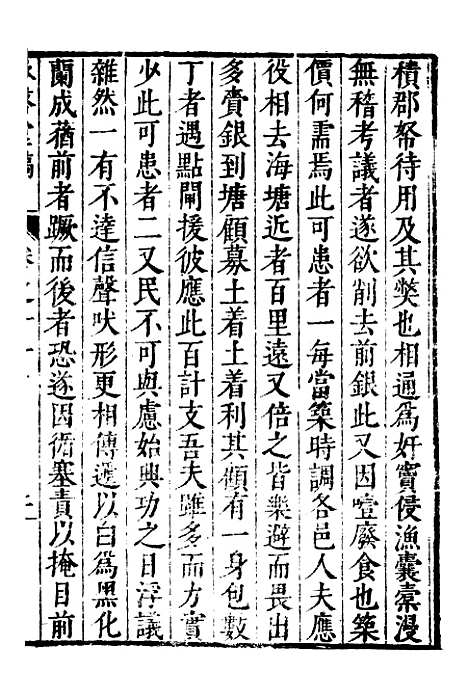 積郡帑待用及其獘也相通爲奸竇侵漁囊槖漫
無稽考議者遂欲削去前銀此又因噎廢食也築
價何需焉此可患者一每當築時調各邑人夫應
役相去海塘近者百里遠又倍之皆樂避而畏出
多賫銀到塘顧募土着土着利其顧有一身包數
丁者遇點閘援彼應此百計支吾夫雖多而方實
少此可患者二又民不可與慮始興功之日浮議
雜然一有不達信聲吠形更相傳遞以白爲黑化
蘭成蕕前者蹶而後者恐遂因循塞責以掩目前